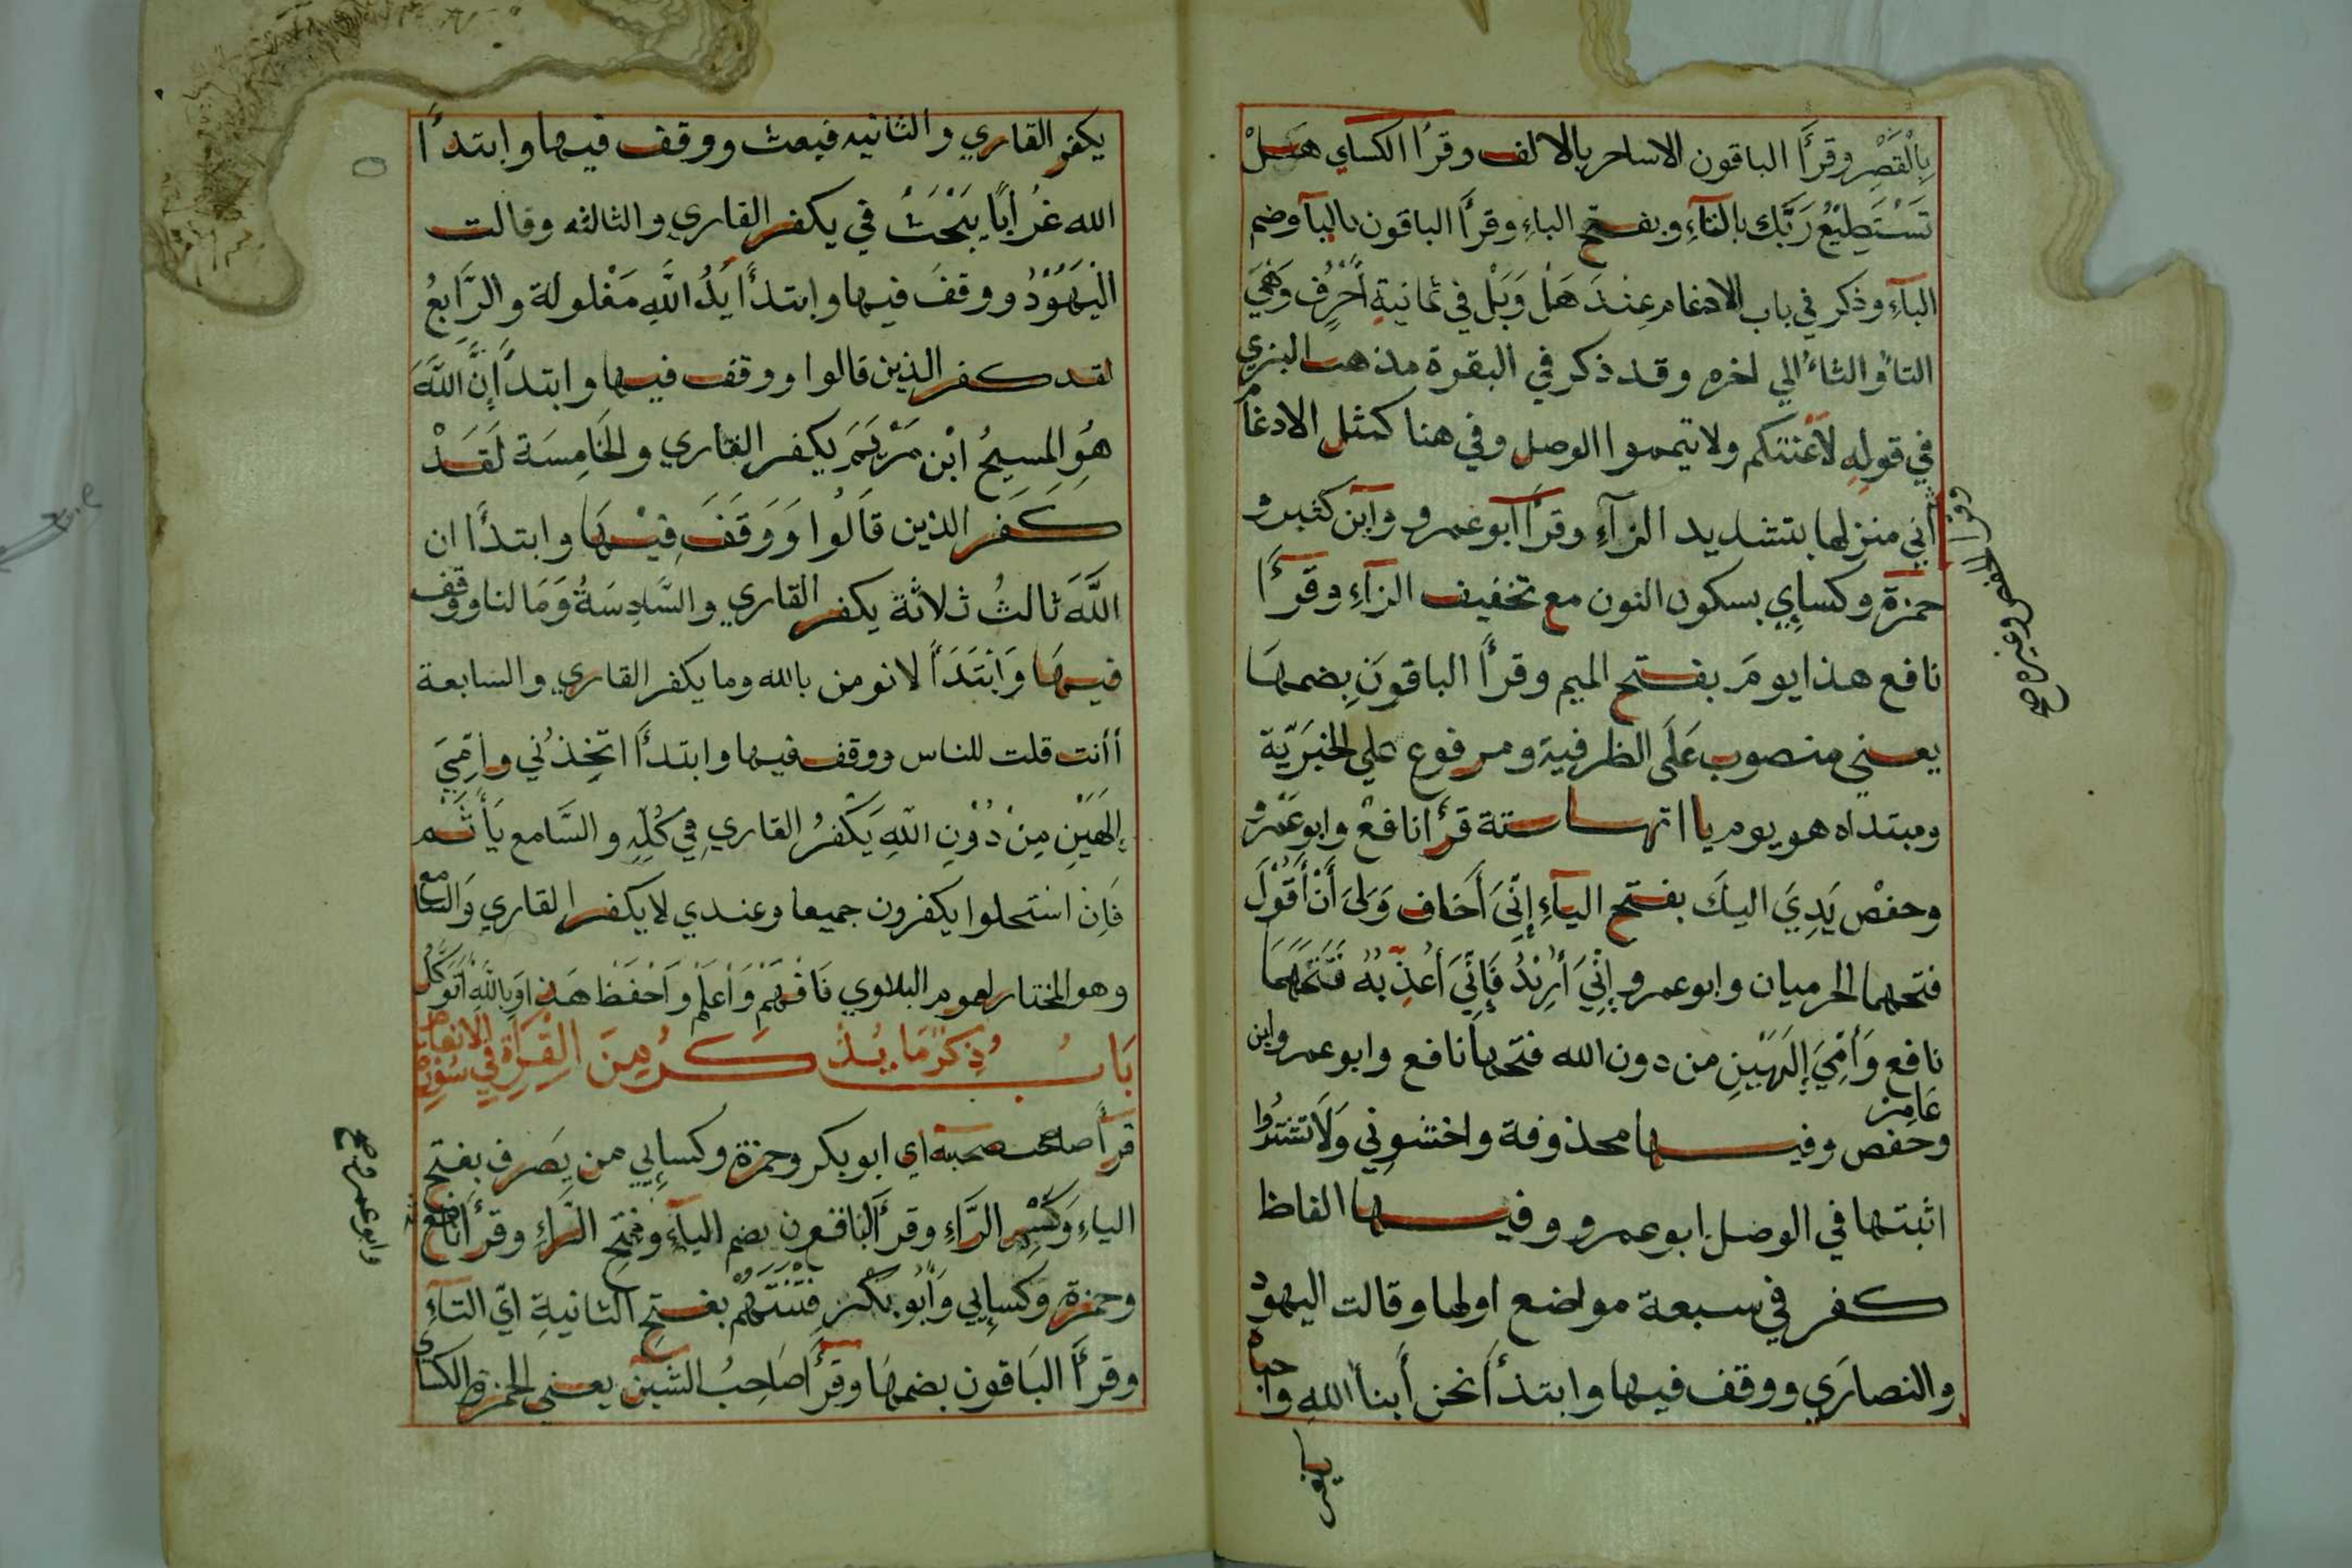 بِالْقَصْرِ وقرأ الباقون الاساحر بالالف وقرأ الكساي هَلْ
تَسْتَطِيْعُ رَبَّك بالتآءِ وبفتح الباءِ وقرأ الباقون باليآ وضم
البآءِ وذكر في باب الادغام عِنْدَ هَلْ وَبَلْ في ثمانيةِ أَحْرُفٍ وَهْيَ
التاءُ والثاءُ الي اخره وقد ذكر في البقرة مذهب البزي
في قولِهِ لأعنتكم ولا تيمموا الوصل وفي هنا كمثل الادغام
أني منزلها بتشديد الزآءِ وقرأ ابو عمرو وابن كثير و
حمزة وكسايي بسكون النون مع تخفيف الزآءِ وقرأ
نافع هذا يومَ بفتح الميم وقرأ الباقون بضمها
يعني منصوب عَلَى الظرفية ومرفوع علي الخبَرِيّة
ومبتداه هو يوم ياآتها ستة قرأ نافع وابو عمرو
وحفص يَدِيَ اليك بفتح اليآءِ إِنِّيَ أَخَاف وَلِيَ أَنْ أَقُوْلَ
فتحهما الحرميان وابو عمرو إِنِّيَ أُرِيْدُ فَإِنِّيَ أُعَذِّبُهُ فَتَحَهُمَا
نافع وَأُمِّيَ إِلَهَيْنِ من دون الله فتحها نافع وابو عمرو وابن
عَامِر
وحفص وفيها محذوفة واخشوني وَلَا تشتروا
اثبتها في الوصل ابو عمرو وفيها الفاظ
كفر في سبعة مواضع اولها وقالت اليهود
والنصارَي ووقف فيها وابتدأ نحن أبنأ اللهِ واحباه
وقرأ
يكفر
يكفر القاري والثانيه فبعث ووقف فيها وابتدأ
الله غُرَابًا يَبْحَثُ في يكفر القاري والثالثه وقالت
الْيَهُوْدُ ووقفَ فيها وابتدأ يَدُ اللهِ مَغْلولة والرَّابِعُ
لقد كفر الذين قالوا ووقف فيها وابتدأ إِنَّ اللهَ
هُوَ المسيحُ ابْن مَرْيَمَ يكفر القاري والخَامِسَة لَقَدْ
كَفَر الذين قَالُوا وَوَقَفَ فِيْهَا وابتدأ ان
اللهَ ثالثُ ثلاثَة يكفر القاري والسَّادِسَةُ وَمَا لنا ووقف
فيهَا وَابْتَدَأَ لا نومن بالله وما يكفر القاري والسابعة
أأنت قلت للناس ووقف فيها وابتدأ اتخِذُني وأمِّيَ
إِلَهَيْنِ مِنْ دُوْنِ اللهِ يَكْفُرُ القاري فِي كُلِّهِ والسَّامع يَأْثَم
فَإِن استحلوا يكفرون جميعا وعندي لا يكفر القاري وَالسامع
وهو المختار لعموم البلاوي فَافْهَمْ وَاعْلَمْ وَاحْفَظْ هَذا وَبِاللهِ أتوَكَّلُ
بَابُ ذِكْرِ مَا يُذْكَرُ مِنَ الْقِرَأَةِ فِي سُوْرَة الانعام
قرأ صاحب صحبة اي ابو بكر وحمزة وكسايي من يَصرف بفتح
الياءِ وَكَسْرِ الرَّاءِ وقرأ الباقون بضم اليآءِ وفتحِ الرَّاءِ وقرأ نافع
وحمزة وكسايي وَأَبُو بَكْر فِتْنَتَهُمْ بفتحِ الثانيةِ ايّ التآءِ
وقرأ البَاقون بضمهَا وقرأَ صَاحِبُ الشين يعني الحمزة والكساي
وابو عمرو صح